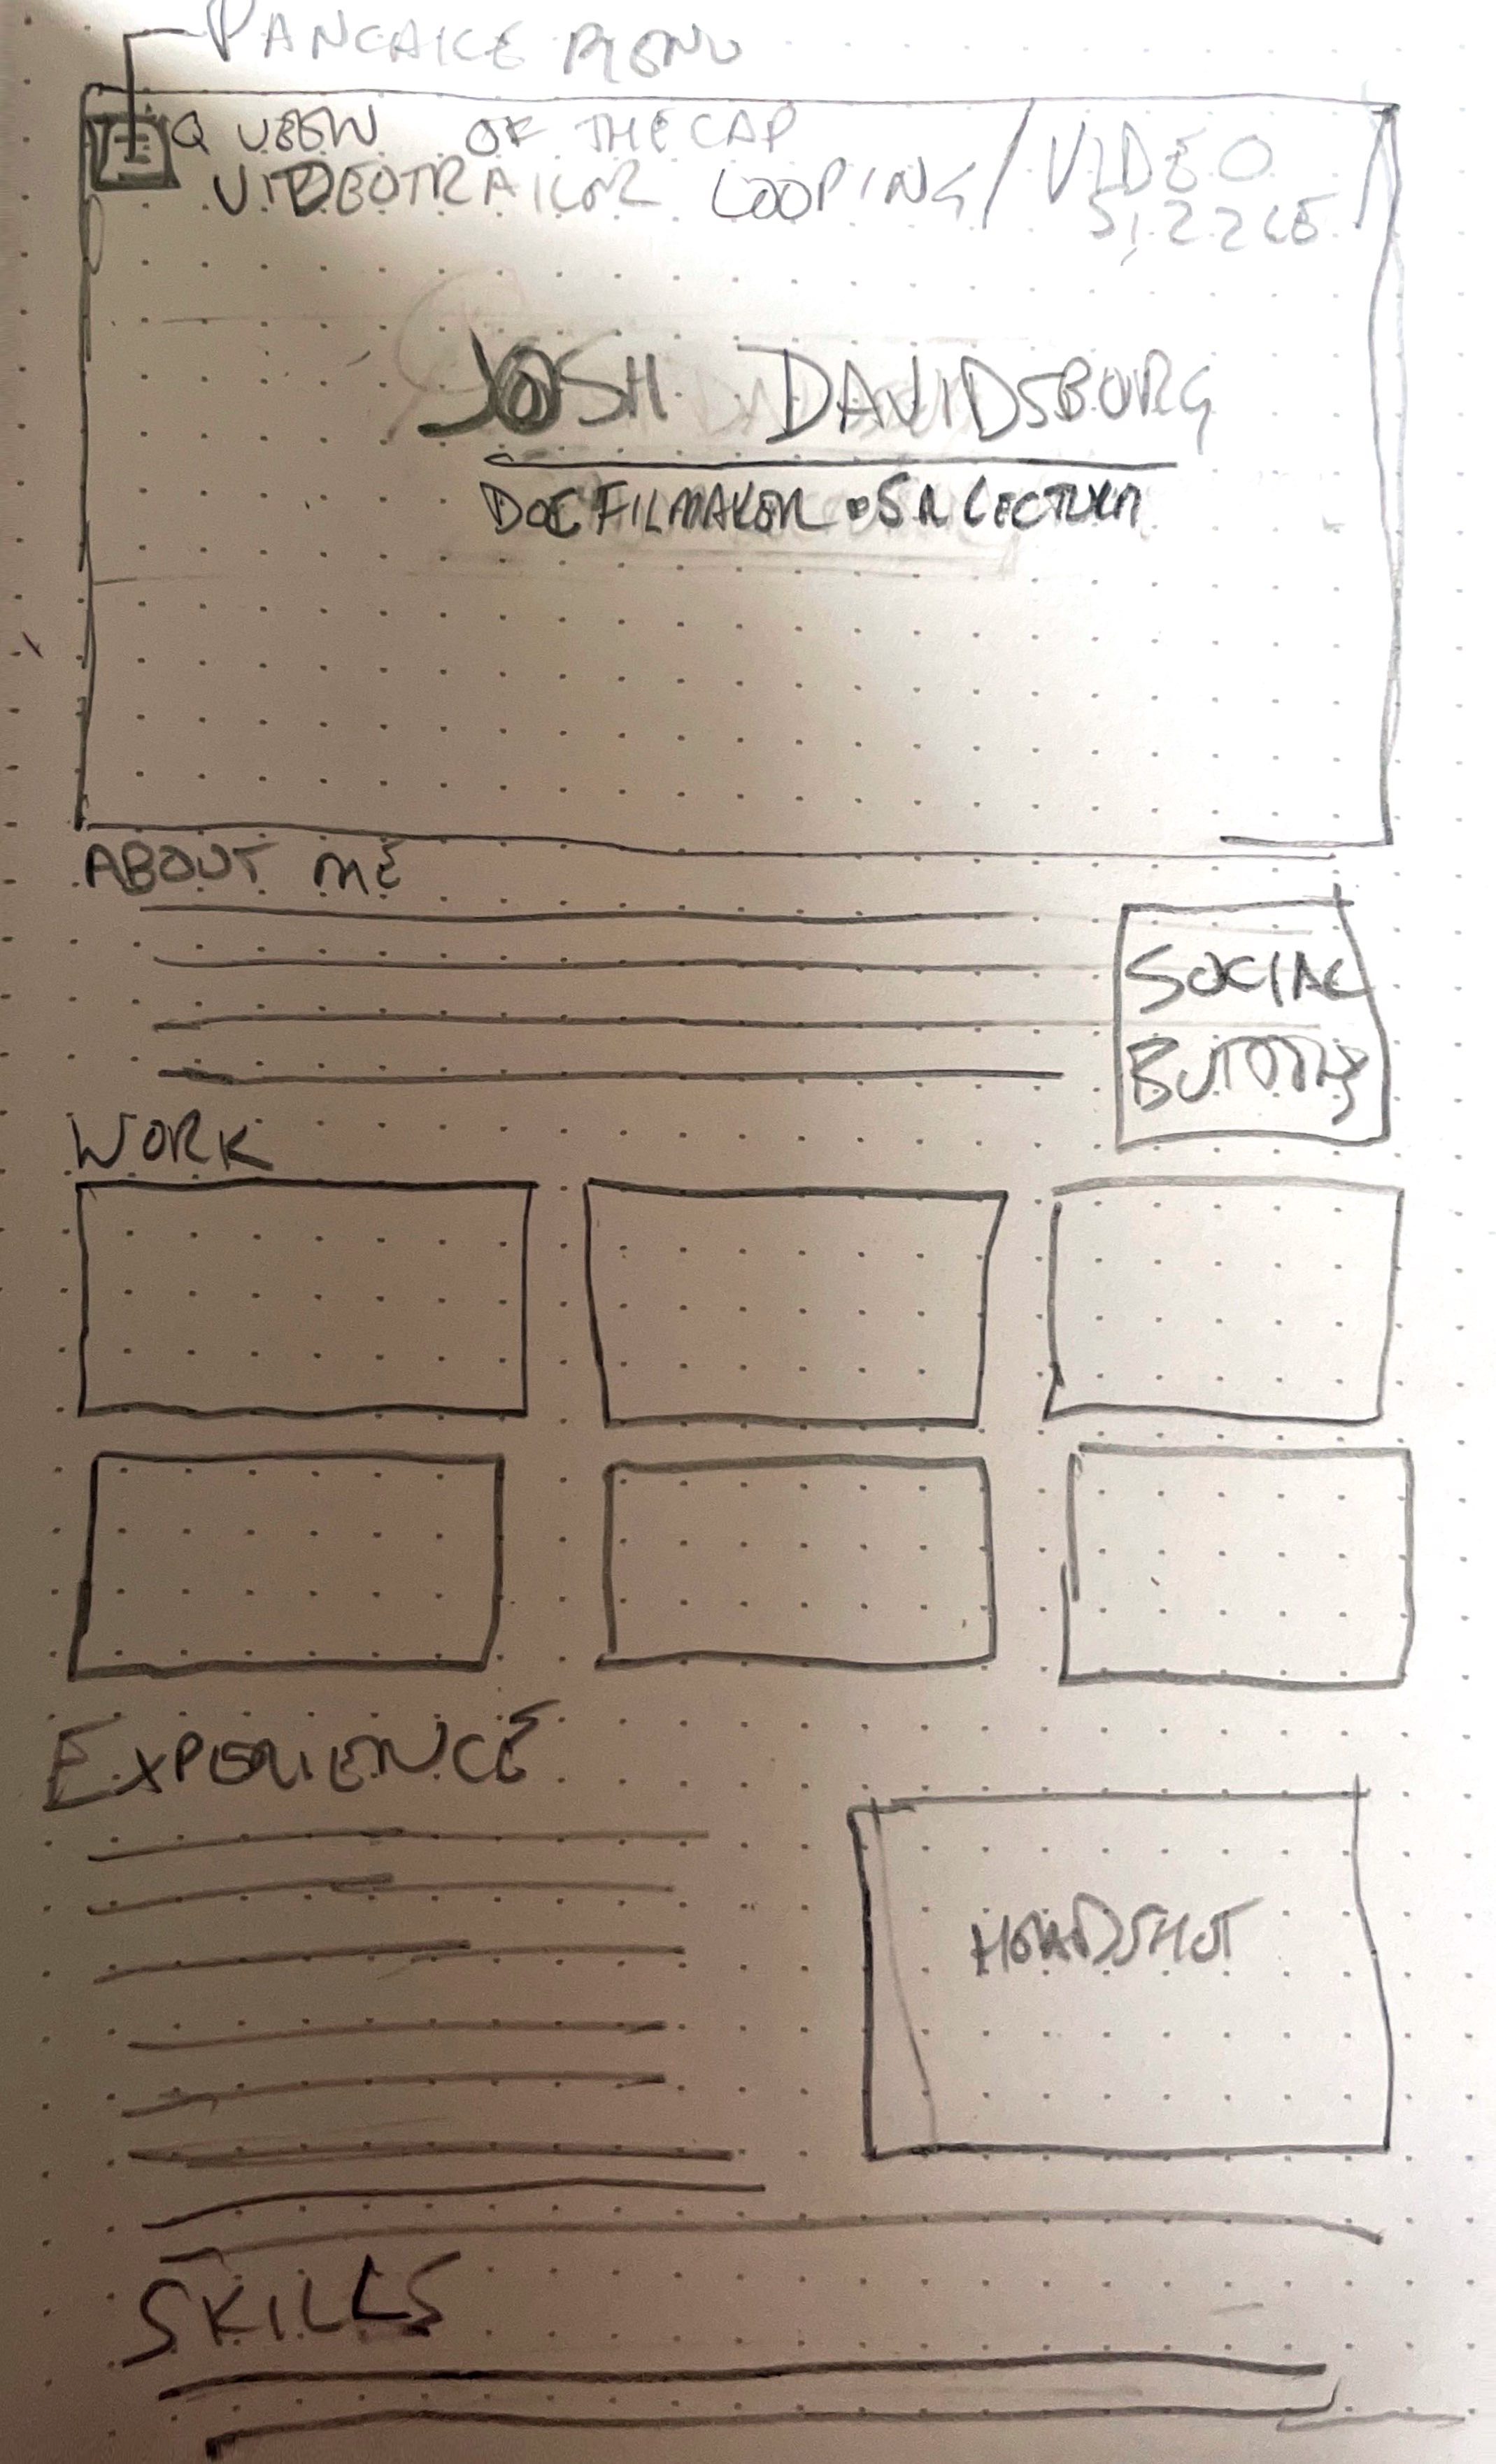 PANCAKE MENU
QUEEN OF THE CAP
VIDEO TRAILOR LOOPING / VIDEO
SIZZLE
JOSH DAVIDSBURG
DOC FILMAKER • SR LECTURER
ABOUT ME
SOCIAL
BUTTONS
WORK
EXPERIENCE
HEADSHOT
SKILLS